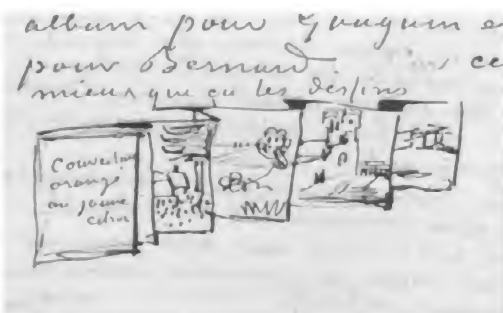 album pour Gauguin e
pour Bernard ce
mieux que ça les dessins
Couverture
orangé
ou jaune
citron